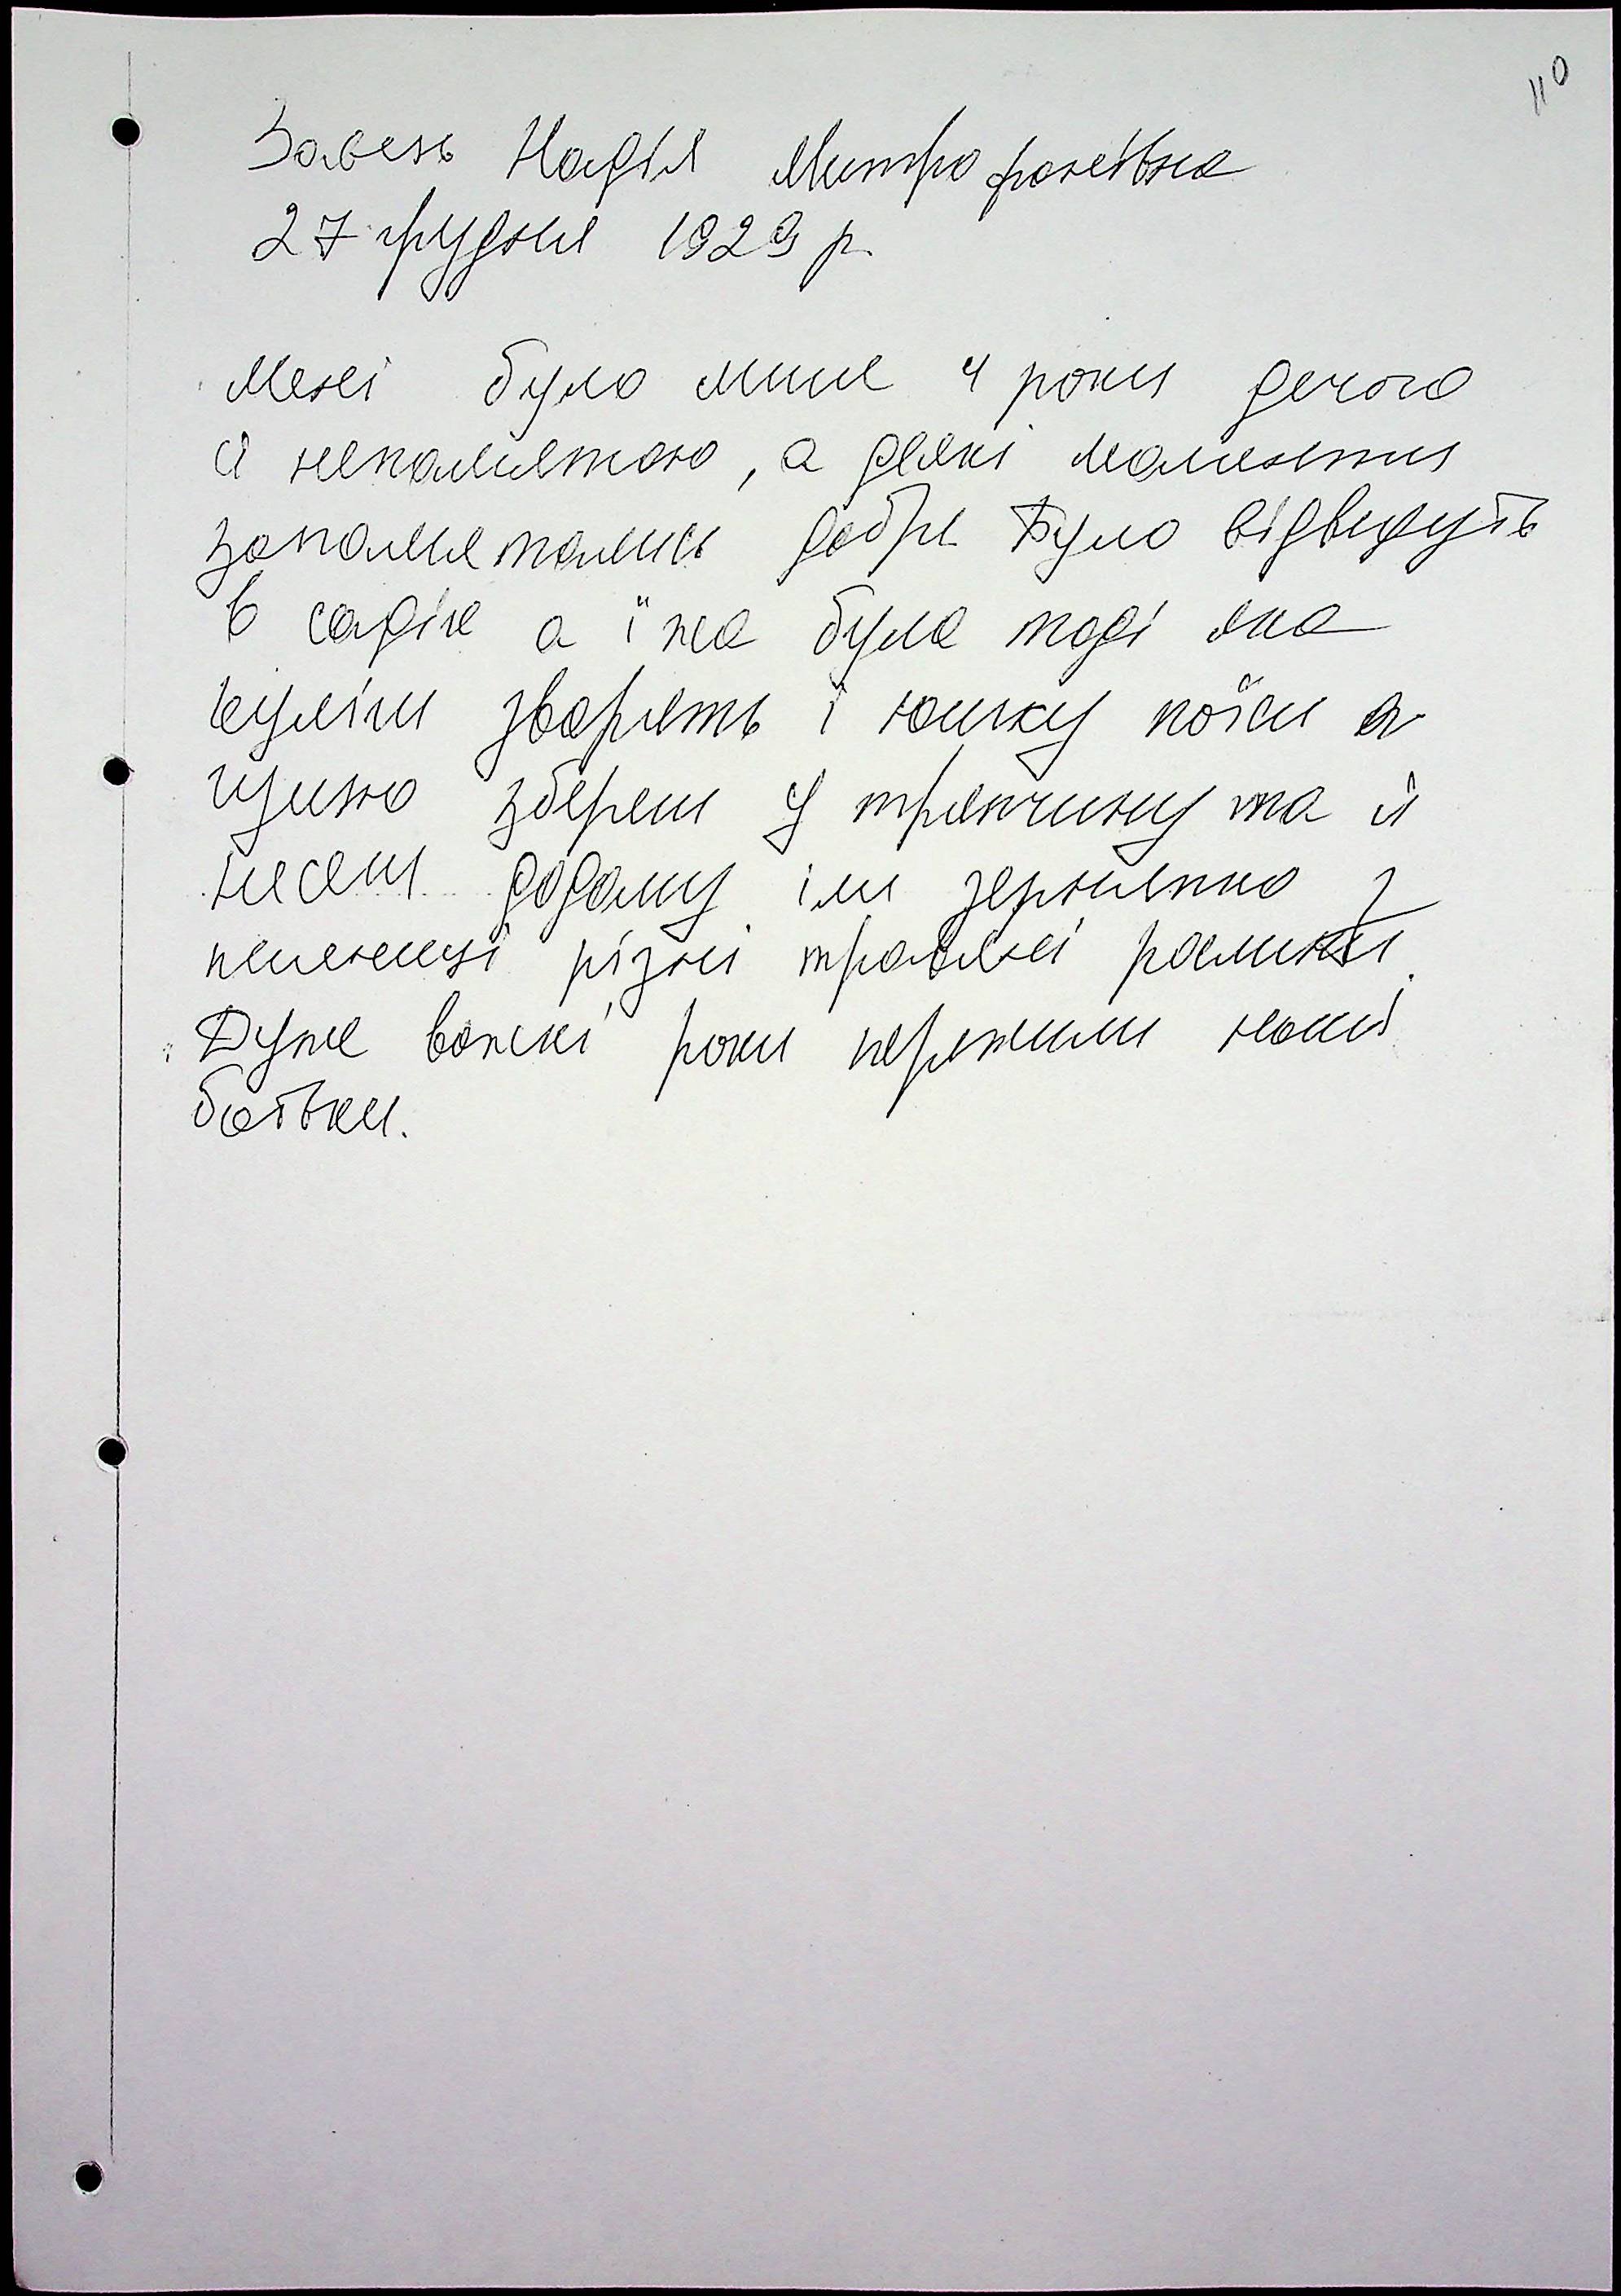 110
Завезь Надія Митрофанівна
27 грудня 1929 р.
Мені було лише 4 роки дечого
й непамиятаю, а деякі моменти
запамиятались добре Було відведуть
в садік а їжа була тоді яка
куліш зварять і юшку поїси а
гущю збереш у тряпчину та й
несеш додому їли зернятко з
пшениці різні травяні рослини.
Дуже важкі роки пережили наші
батьки.